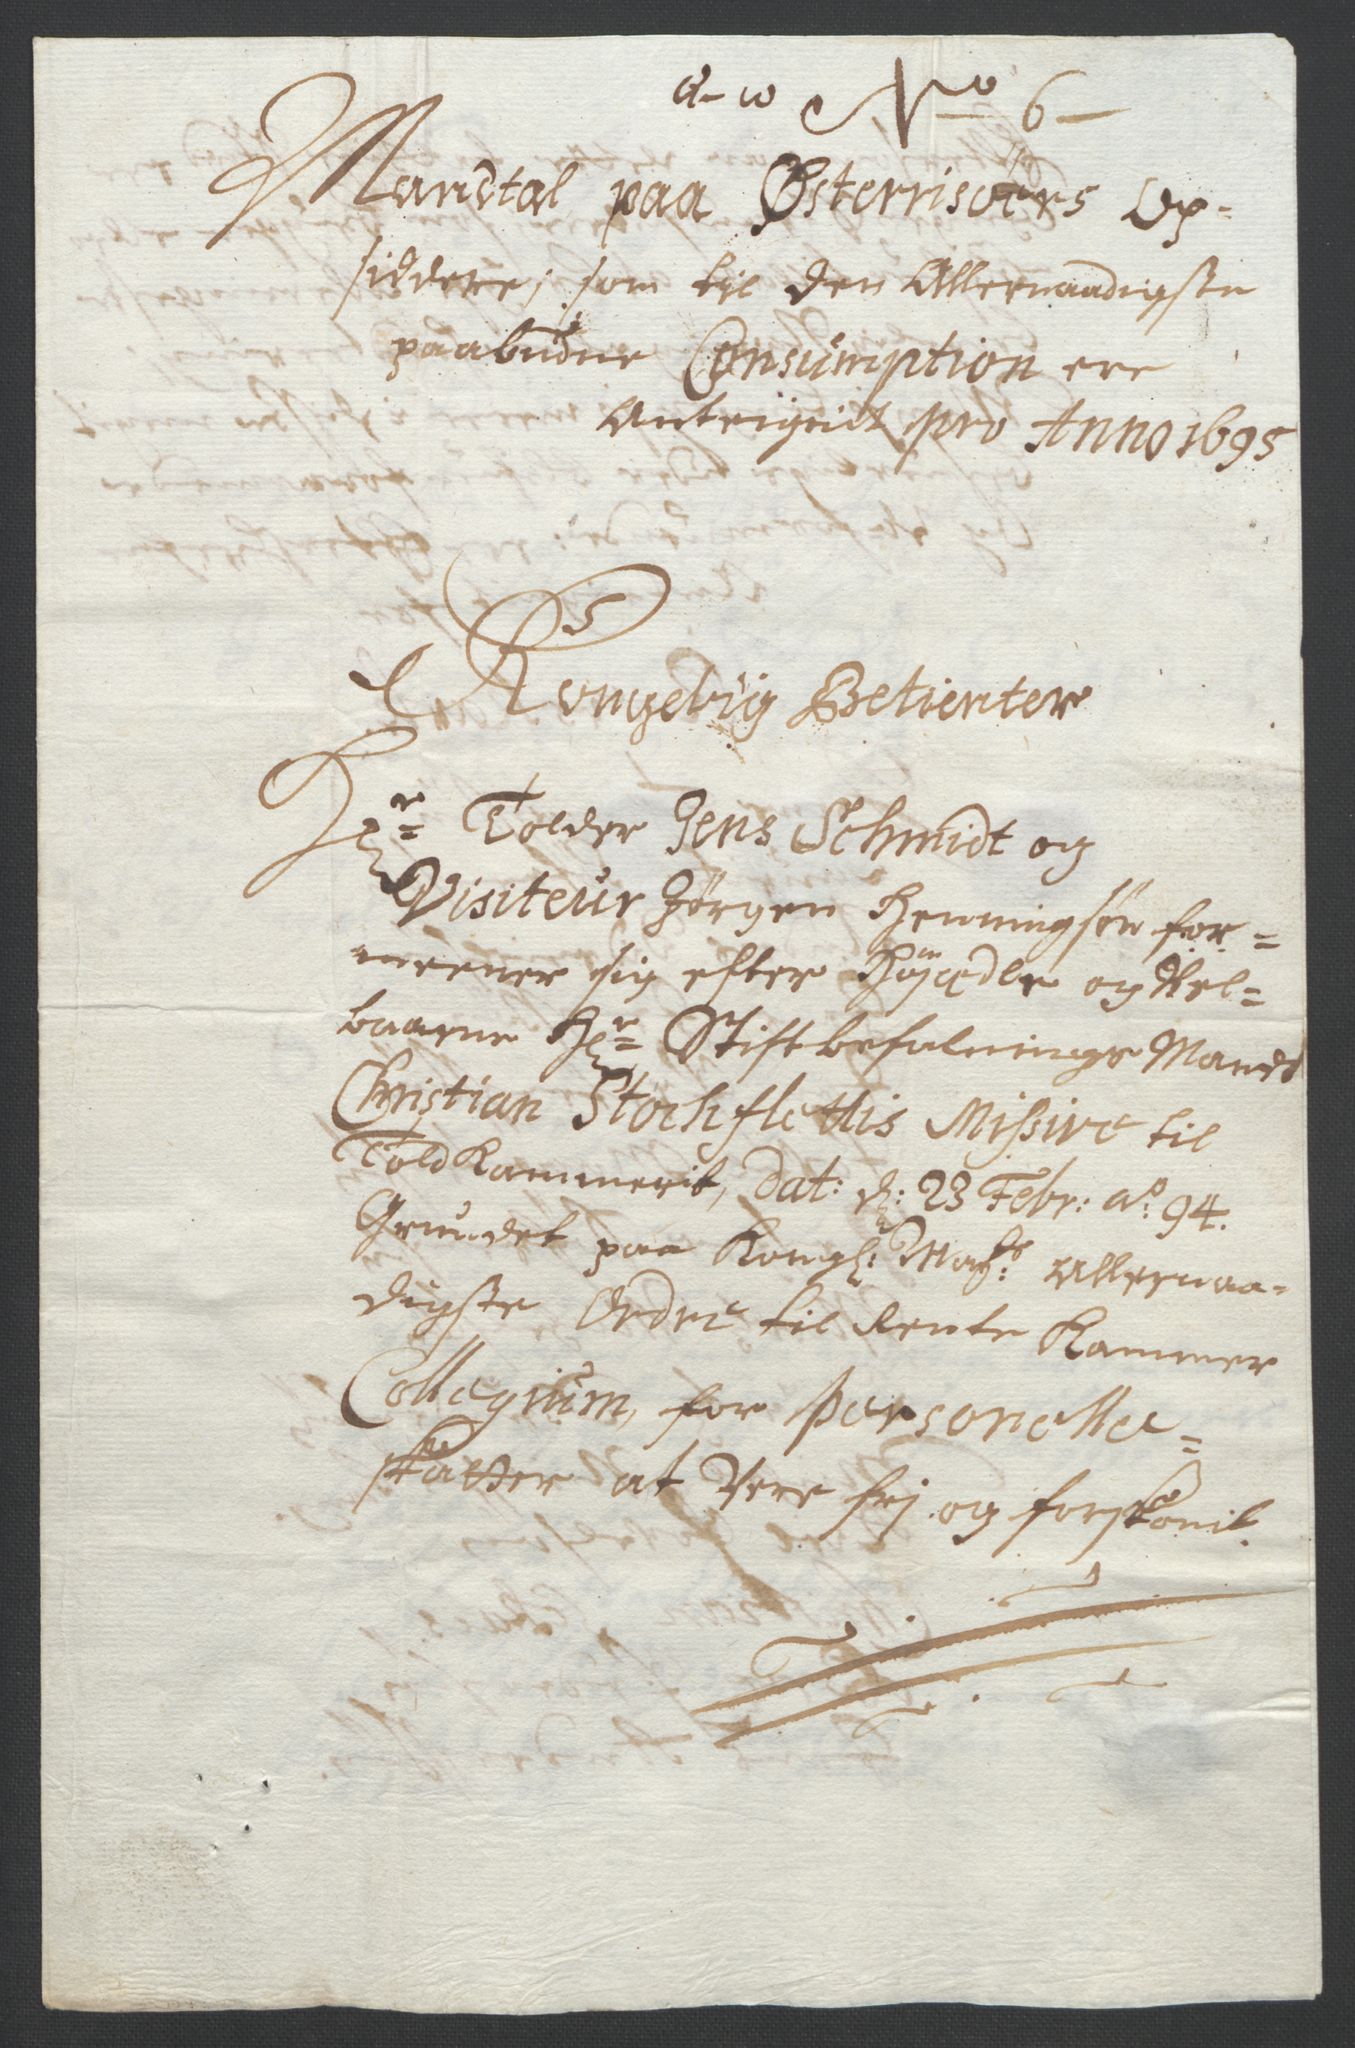 No 6
Mandtal paa Østerrisøers Op-
siddere, som til den Allernaadigste
paabudne Consumption ere
Anteignit pro Anno 1695
Kongelig Betienter
Hr Tolder Jens Schmidt og
Visiteur Jørgen Henningsøn for=
meener sig efter Høyædle og Vel=
baarne Hr Stiftbefalnings Mands
Christian Stockflethis Missive til
Told Kammerit, dat: d: 23 Febr: Ao 94.
Grundet paa Kongl: Mayts Allernaa-
digste Ordre til Rente Kammer
Collegium, for personelle=
skatter at Vere frj og forskonit.